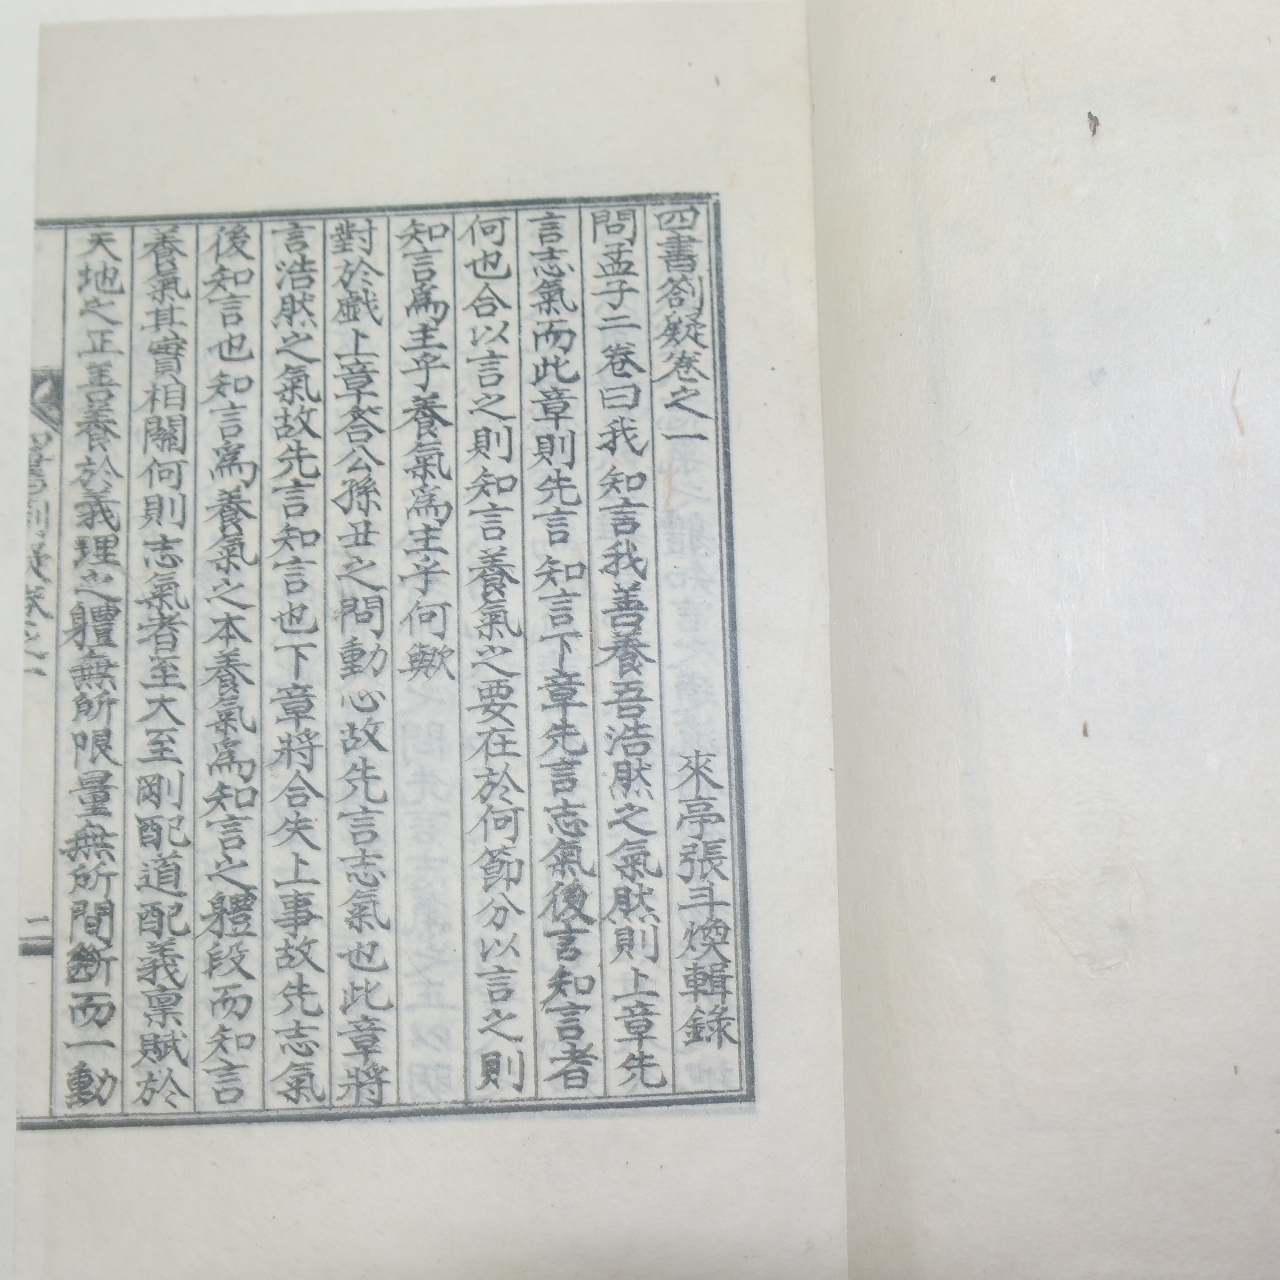 四書劄疑卷之一
來亭張斗煥輯錄
問孟子二卷曰我知言我善養吾浩然之氣然則上章先
言志氣而此章則先言知言下章先言志氣後言知言者
何也合以言之則知言養氣之要在於何節分以言之則
知言爲主乎養氣爲主乎何歟
對於戱上章答公孫丑之問動心故先言志氣也此章將
言浩然之氣故先言知言也下章將合失上事故先志氣
後知言也知言爲養氣之本養氣爲知言之體段而知言
養氣其實相關何則志氣者至大至剛配道配義禀賦於
天地之正善養於義理之體無所限量無所間斷而一動
四書劄疑卷之一
二